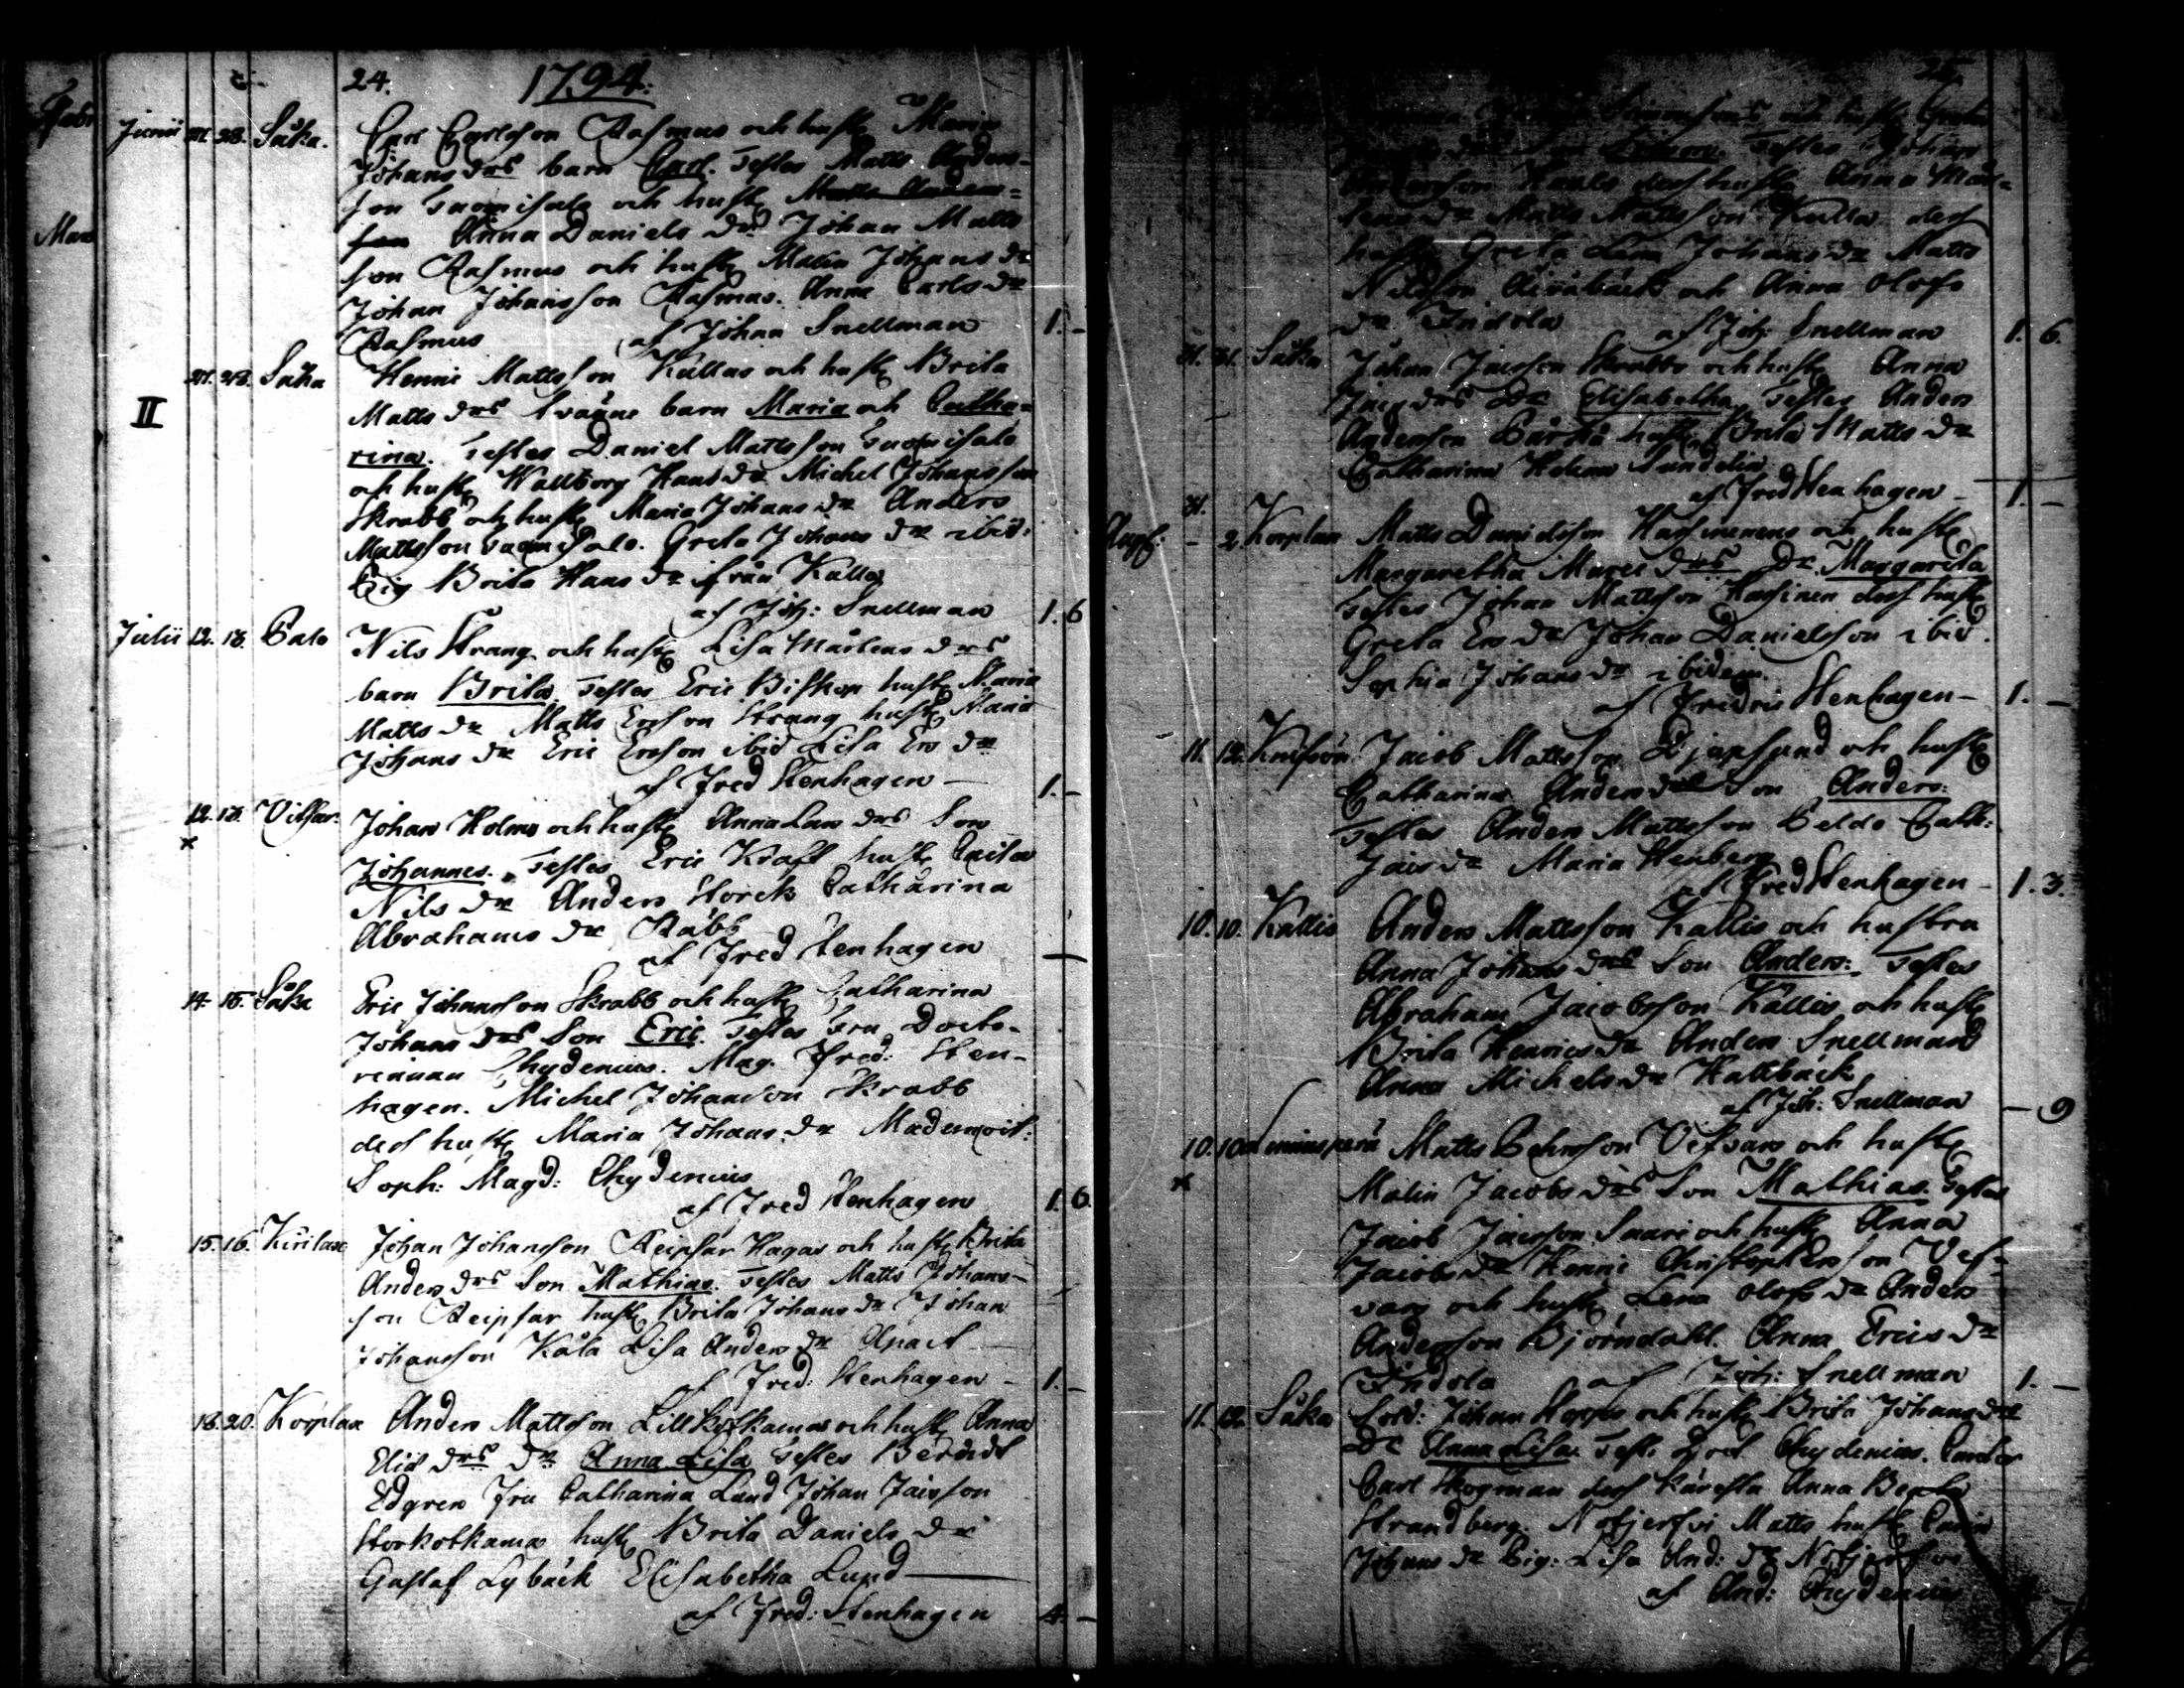 24. 1794.
Junii 27. 28. Såka. Carl Carlsson Rasmus och hust. Maria
Johans drs barn Carl. Testes Matts Anders-
son Suomisalo och hust. Matts Anders-
son Anna Daniels Dr Johan Matts
son Rasmus och hust. Malin Johans dr
Johan Johansson Rasmus. Anna Carls dr
Rasmus af Johan Snellman 1. -
27. 28. Såka Henric Mattsson Källas och hust. Brita
II Matts drs tvänne barn Maria och Catha-
rina. Testes Daniel Mattsson Suomisalo
och hust. Wallborg Hans dr Michel Johansson
Skrabb och hust. Maria Johans dr Anders
Mattsson Suomisalo. Greta Johans dr ibid:
Pig. Brita Hans dr ifrån Källas
af Joh: Snellman 1. 6
Julii 12. 13. Palo Nils Strang och hust. Lisa Mårtens drs
barn Brita Testes Eric Biskop hust. Maria
Matts dr Matts Ersson Strang hust. Maria
Johans dr Eric Ersson ibid Lisa Ers dr
af Fred Stenhagen 1. -
12. 13. Vitsar Johan Holm och hust. Anna Lars drs Son
Johannes. Testes Eric Kraft hust. Caisa
Nils dr Anders Storck Catharina
Abrahams dr Räbb
af Fred Stenhagen —
14. 15. Såka Eric Johansson Skrabb och hust. Catharina
Johans drs Son Eric. Testes Fru Docto-
rinnan Chydenius. Mag. Fred: Sten-
hagen. Michel Johansson Skrabb
dess hust. Maria Johans dr Mademois:
Soph: Magd: Chydenius
af Fred Stenhagen 1. 6.
15. 16. Kirilax Johan Johansson Reipsar Hagas och hust. Brita
Anders drs Son Mathias. Testes Matts Johans-
son Reipsar hust. Brita Johans dr Johan
Johansson Kåla Lisa Anders dr
af Fred: Stenhagen 1. -
18. 20. Korplax Anders Mattsson Lillkotkamas och hust. Anna
Elis drs Dr Anna Lisa Testes Berndt
Edgren Fru Catharina Lund Johan Jacsson
Storkotkamas hust. Brita Daniels dr
Gustaf Lybäck Elisabetha Lund
af Fred: Stenhagen 4. -
25.
Simons drs och hust. Greta
Son Simon. Testes Johan
dess hust. Anna Mår-
tens dr Matts Mattsson Kulla dess
hust. Greta Lena Johans dr Matts
Nilsson och Anna Olofs
dr Indola af Joh: Snellman 1. 6.
31. 31. Såka Johan Jacsson Skrabb och hust. Anna
Jacs drs Dr Elisabetha Testes Anders
Andersson hust. Brita Matts dr
Catharina Helena Sundelin
af Fred Stenhagen 1. -
31.
Aug. - 2. Korplax Matts Danielsson Hassinens och hust.
Margaretha Marci drs Dr. Margareta
Testes Johan Mattsson Hassinen dess hust.
Greta Ers dr Johan Danielsson ibid.
Sophia Johans dr ibidem.
af Fredric Stenhagen 1. -
11. 12. Knifsön Jacob Mattsson Djupsund och hust.
Catharina Anders drs Son Anders.
Testes Anders Mattsson Peldo Cath:
Jacs dr Maria Stenberg
af Fred Stenhagen 1. 3.
10. 10. Kallis Anders Mattsson Kallis och hustru
Anna Johans drs Son Anders. Testes
Abraham Jacobsson Kallis och hust.
Brita Henrics dr Anders Snellman
Anna Michels dr Hallbäck
af Joh: Snellman - 9
10. 10. Matts Pehrsson Vesvars och hust.
Malin Jacobs drs Son Mathias. Testes
Jacob Jacsson Saari och hust. Anna
Jacobs dr Henric Christophersson Ves-
vars och hust. Lena Olofs dr Anders
Andersson Björndahl. Anna Erics dr
Indola af Joh: Snellman 1. -
11. 12. Såka Sold: Johan Hoppe och hust. Brita Johans drs
Dr Anna Lisa. Test. Chydenius.
Carl Skogman dess käresta Anna Beata
Strandberg. Nissjerfvi Matts hust. Carin
Johans dr Pig: Lisa And: dr
af And: Chydenius